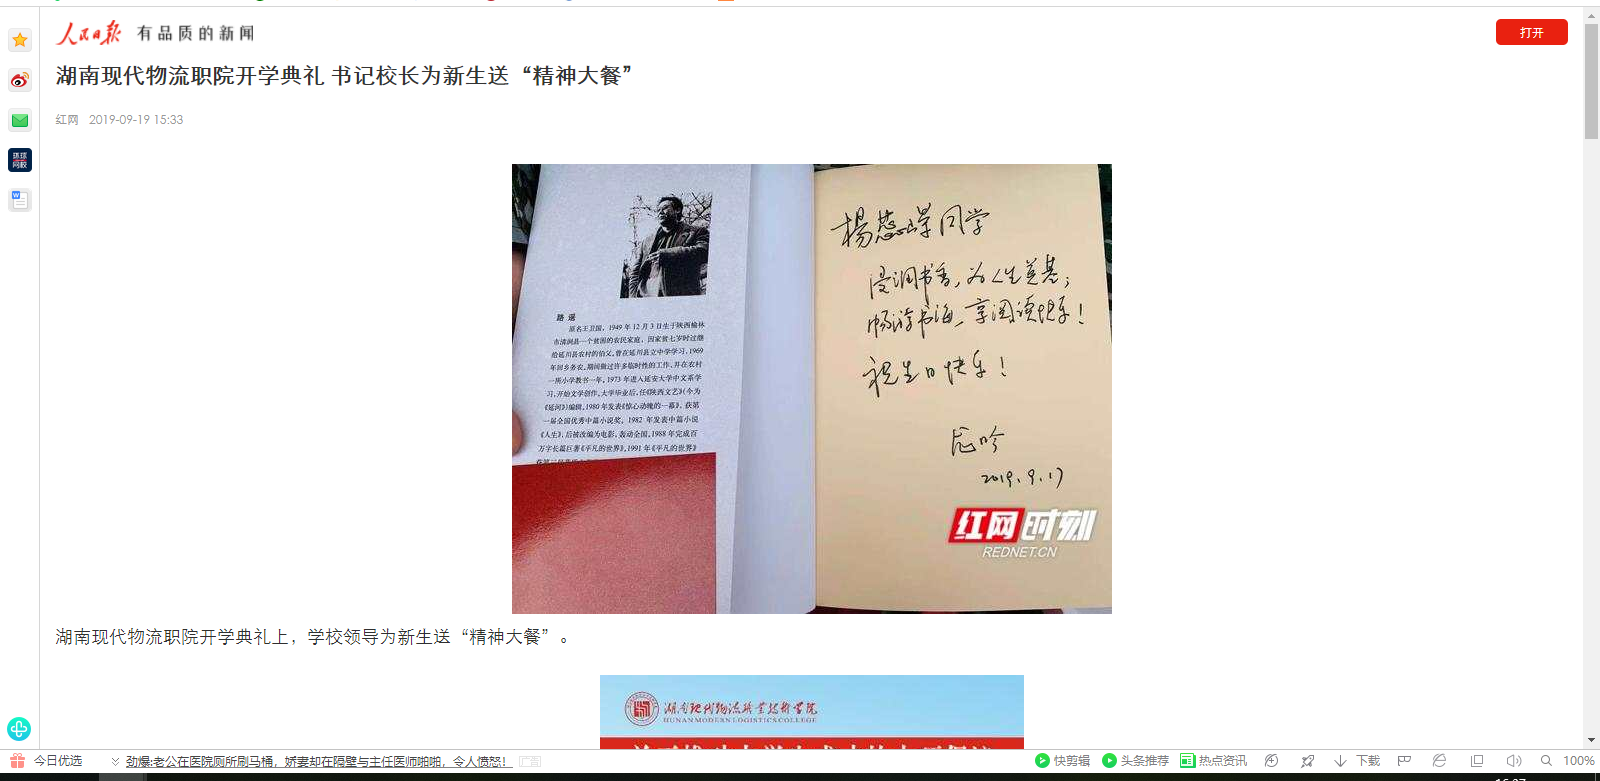 人民日报 有品质的新闻
打开
湖南现代物流职院开学典礼 书记校长为新生送“精神大餐”
红网 2019-09-19 15:33
环球
网校
路 遥
原名王卫国，1949 年 12 月 3 日生于陕西榆林
市清涧县一个贫困的农民家庭，因家贫七岁时过继
给延川县农村的伯父。曾在延川县立中学学习，1969
年回乡务农。期间做过许多临时性的工作，并在农村
一所小学教书一年。1973 年进入延安大学中文系学
习，开始文学创作。大学毕业后，任《陕西文艺》（今为
《延河》）编辑。1980 年发表《惊心动魄的一幕》，获第
一届全国优秀中篇小说奖，1982 年发表中篇小说
《人生》，后被改编为电影，轰动全国。1988 年完成百
万字长篇巨著《平凡的世界》，1991年《平凡的世界》
同学
浸润书香，为人生奠基；
畅游书海，享阅读快乐！
祝生日快乐！
2019.9.17
红网时刻
REDNET.CN
湖南现代物流职院开学典礼上，学校领导为新生送“精神大餐”。
湖南现代物流职业技术学院
HUNAN MODERN LOGISTICS COLLEGE
今日优选 劲爆:老公在医院厕所刷马桶，娇妻却在隔壁与主任医师啪啪，令人愤怒！ 广告 快剪辑 头条推荐 热点资讯 下载 100%